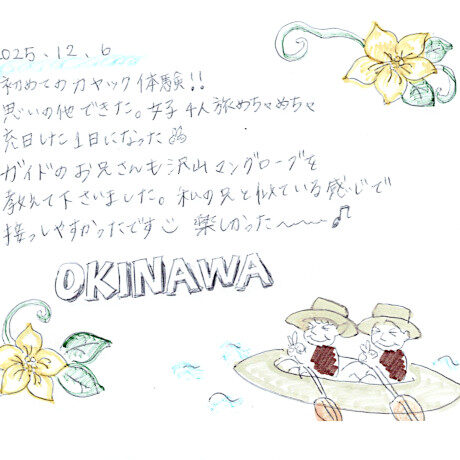 2025.12.6
初めてのカヤック体験!!
思いの他できた。女子4人旅めちゃめちゃ
充日した1日になった
ガイドのお兄さんも沢山マングローブを
教えて下さいました。私の兄と似ている感じで
接っしやすかったです 楽しかった〜〜♪
OKINAWA